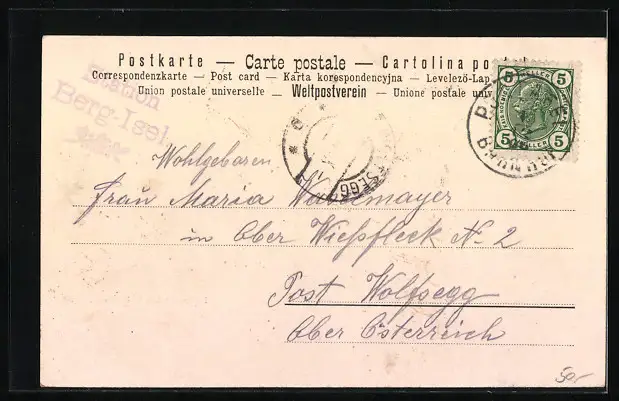 Postkarte — Carte postale — Cartolina po
Correspondenzkarte — Post card — Karta korespondencyjna — Levelező-Lap
Union postale universelle — Weltpostverein — Unione postale univ
Station
Berg-Isel
5 HELLER 5
5 5
SEGG
Wohlgeboren
Frau Maria
in Ober Wießfleck N. 2
Post Wolfsegg
Ober Österreich
50,-